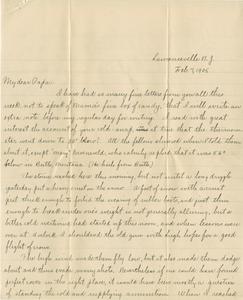 Lawrenceville N.J.
Feb. 7, 1905
My dear Papa:
I have had so many fine letters from you all this
week, not to speak of Mama's fine box of candy, that I will write an
extra note before my regular day for writing. I read with great
interest the account of your cold snap, at the time that the thermom-
eter went down to 20° below! All the fellows
about it, except " , who calmly replied that it was 56°
below in Butte, Montana (He hails from Butte).
The storm ceased here this morning, but not until a long drizzle
yesterday put a heavy crust on the snow. A foot of snow with a crust
just thick enough to forbid the wearing of rubber boots, and just thin
enough to break under one's weight is not generally alluring, but a
bitter cold wind had started up this noon, and when lessons were
over at o'clock I shouldered the old gun with high hopes for a good
flight of crows.
The high wind made them fly low, but it also made them dodge
about and thus evade many shots. Nevertheless if we could have found
perfect cover in the right place, it would have been mostly a question
of standing the cold and supplying ammunition. When I reached